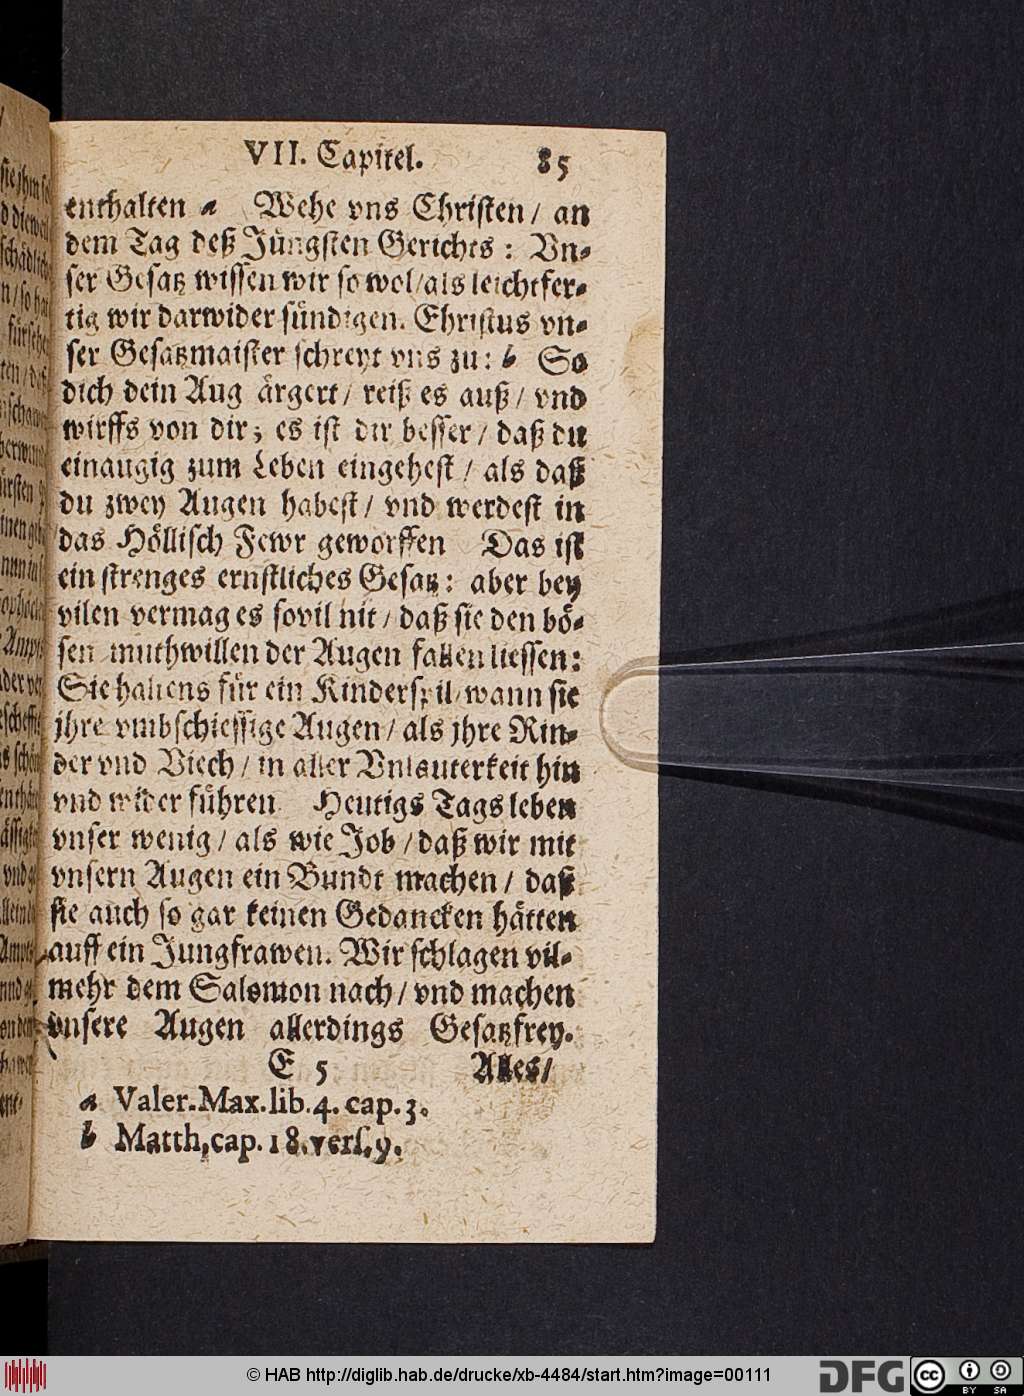 VII. Capitel. 85
enthalten a Wehe vns Christen / an
dem Tag deß Jüngsten Gerichts : Vn-
ser Gesatz wissen wir so wol / als leichtfer-
tig wir darwider sündigen. Christus vn-
ser Gesatzmaister schreyt vns zu: b So
dich dein Aug ärgert / reiß es auß / vnd
wirffs von dir; es ist dir besser / daß du
einaugig zum Leben eingehest / als daß
du zwey Augen habest / vnd werdest in
das Höllisch Fewr geworffen Das ist
ein strenges ernstliches Gesatz : aber bey
vilen vermag es sovil nit / daß sie den bö-
sen muthwillen der Augen fallen liessen:
Sie haltens für ein Kinderspil / wann sie
jhre vmbschiessige Augen / als jhre Rin-
der vnd Viech / in aller Vnlauterkeit hin
vnd wider führen Heutigs Tags leben
vnser wenig / als wie Job / daß wir mit
vnsern Augen ein Bundt machen / daß
sie auch so gar keinen Gedancken hätten
auff ein Jungfrawen. Wir schlagen vil-
mehr dem Salomon nach / vnd machen
vnsere Augen allerdings Gesatzfrey.
E 5 Alles /
a Valer. Max. lib. 4. cap. 3.
b Matth, cap. 18. vers. 9.
© HAB http://diglib.hab.de/drucke/xb-4484/start.htm?image=00111
DFG
cc BY SA